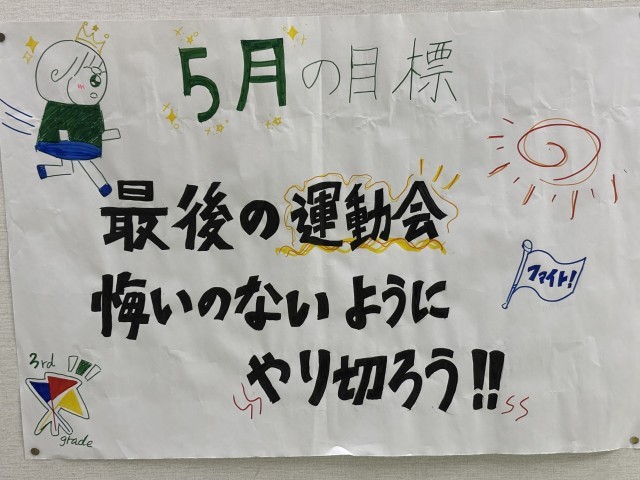 5月の目標
最後の運動会
悔いのないように
やり切ろう!!
ファイト!
3rd
grade